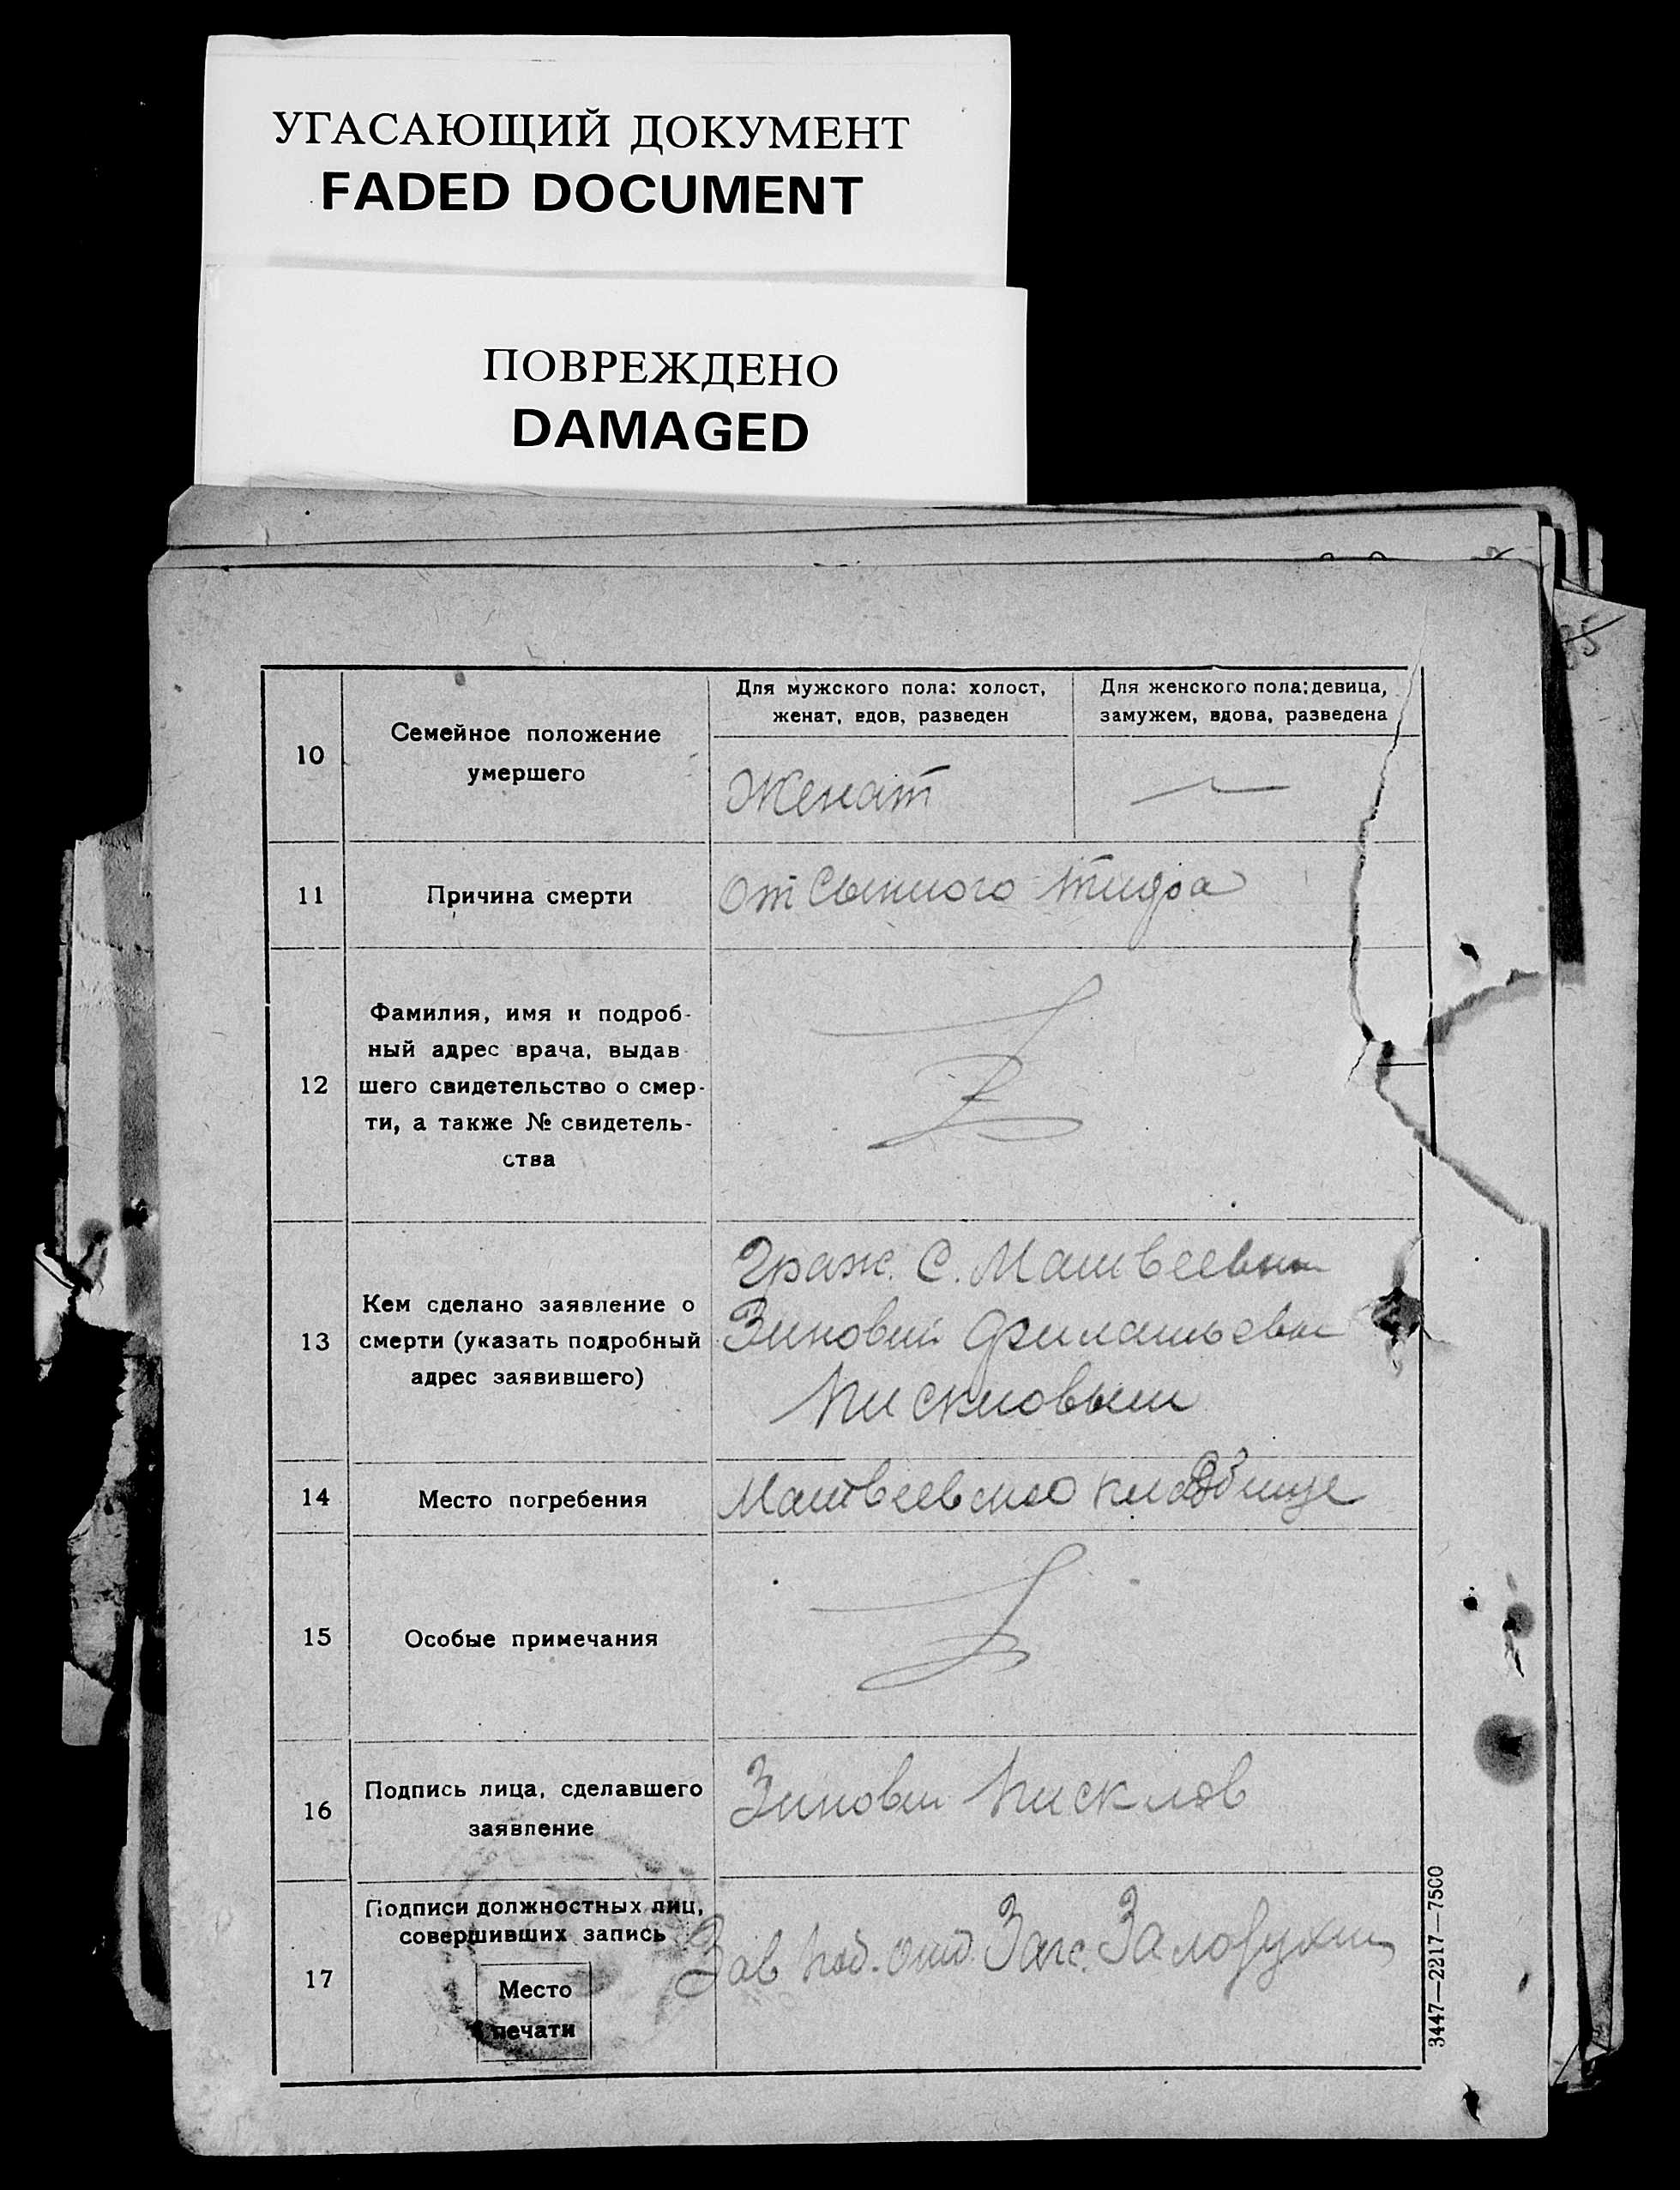 УГАСАЮЩИЙ ДОКУМЕНТ
FADED DOCUMENT
ПОВРЕЖДЕНО
DAMAGED
10
Семейное положение
умершего
Для мужского пола: холост,
женат, вдов, разведен
Для женского пола: девица,
замужем, вдова, разведена
Женат
11
Причина смерти
От Сыпного тифа
12
Фамилия, имя и подроб-
ный адрес врача, выдав
шего свидетельство о смер-
ти, а также № свидетель-
ства
13
Кем сделано заявление о
смерти (указать подробный
адрес заявившего)
Граж. С. Матвеевки
Зиновий Филатьевы
Пискловым
14
Место погребения
Матвеевско кладбище
15
Особые примечания
16
Подпись лица, сделавшего
заявление
Зиновий Писклов
17
Подписи должностных лиц,
совершивших запись
Место
печати
Зав под. отд. Загс.
3447—2217—7500